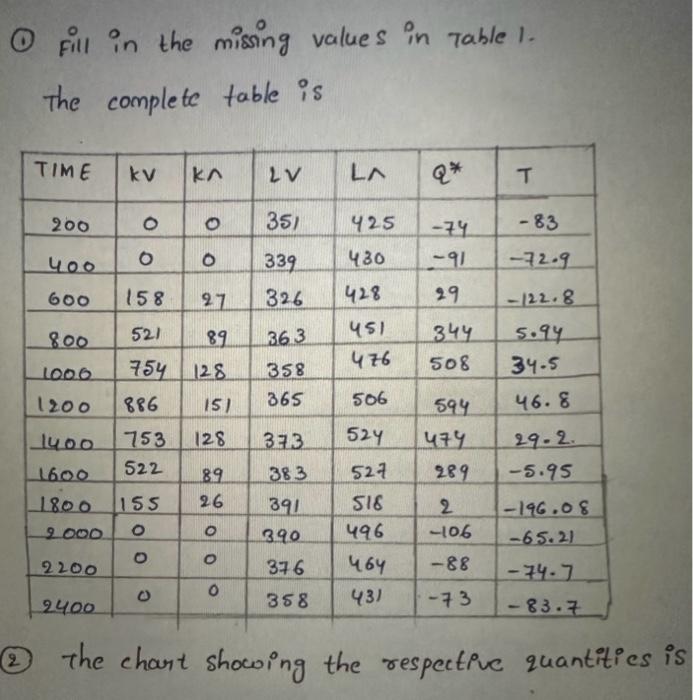 ① Fill in the missing values in Table 1.
The complete table is
TIME KV K∧ LV L∧ Q* T
200 0 0 351 425 -74 -83
400 0 0 339 430 -91 -72.9
600 158 27 326 428 29 -122.8
800 521 89 363 451 344 5.94
1000 754 128 358 476 508 34.5
1200 886 151 365 506 594 46.8
1400 753 128 373 524 474 29.2.
1600 522 89 383 527 289 -5.95
1800 155 26 391 518 2 -196.08
2000 0 0 390 496 -106 -65.21
2200 0 0 376 464 -88 -74.7
2400 0 0 358 431 -73 -83.7
② The chart showing the respective quantities is